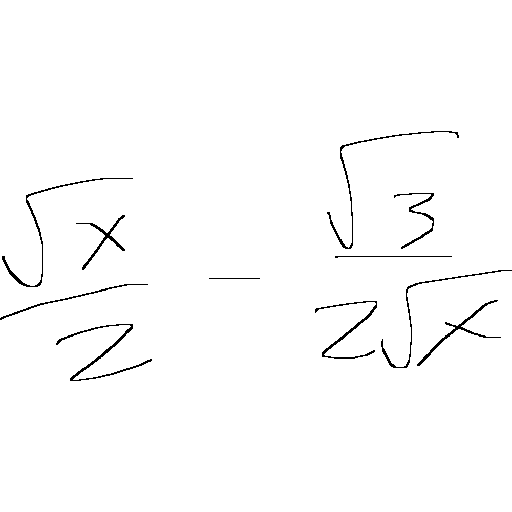 \frac{\sqrt{x}}{2} - \frac{\sqrt{3}}{2\sqrt{x}}